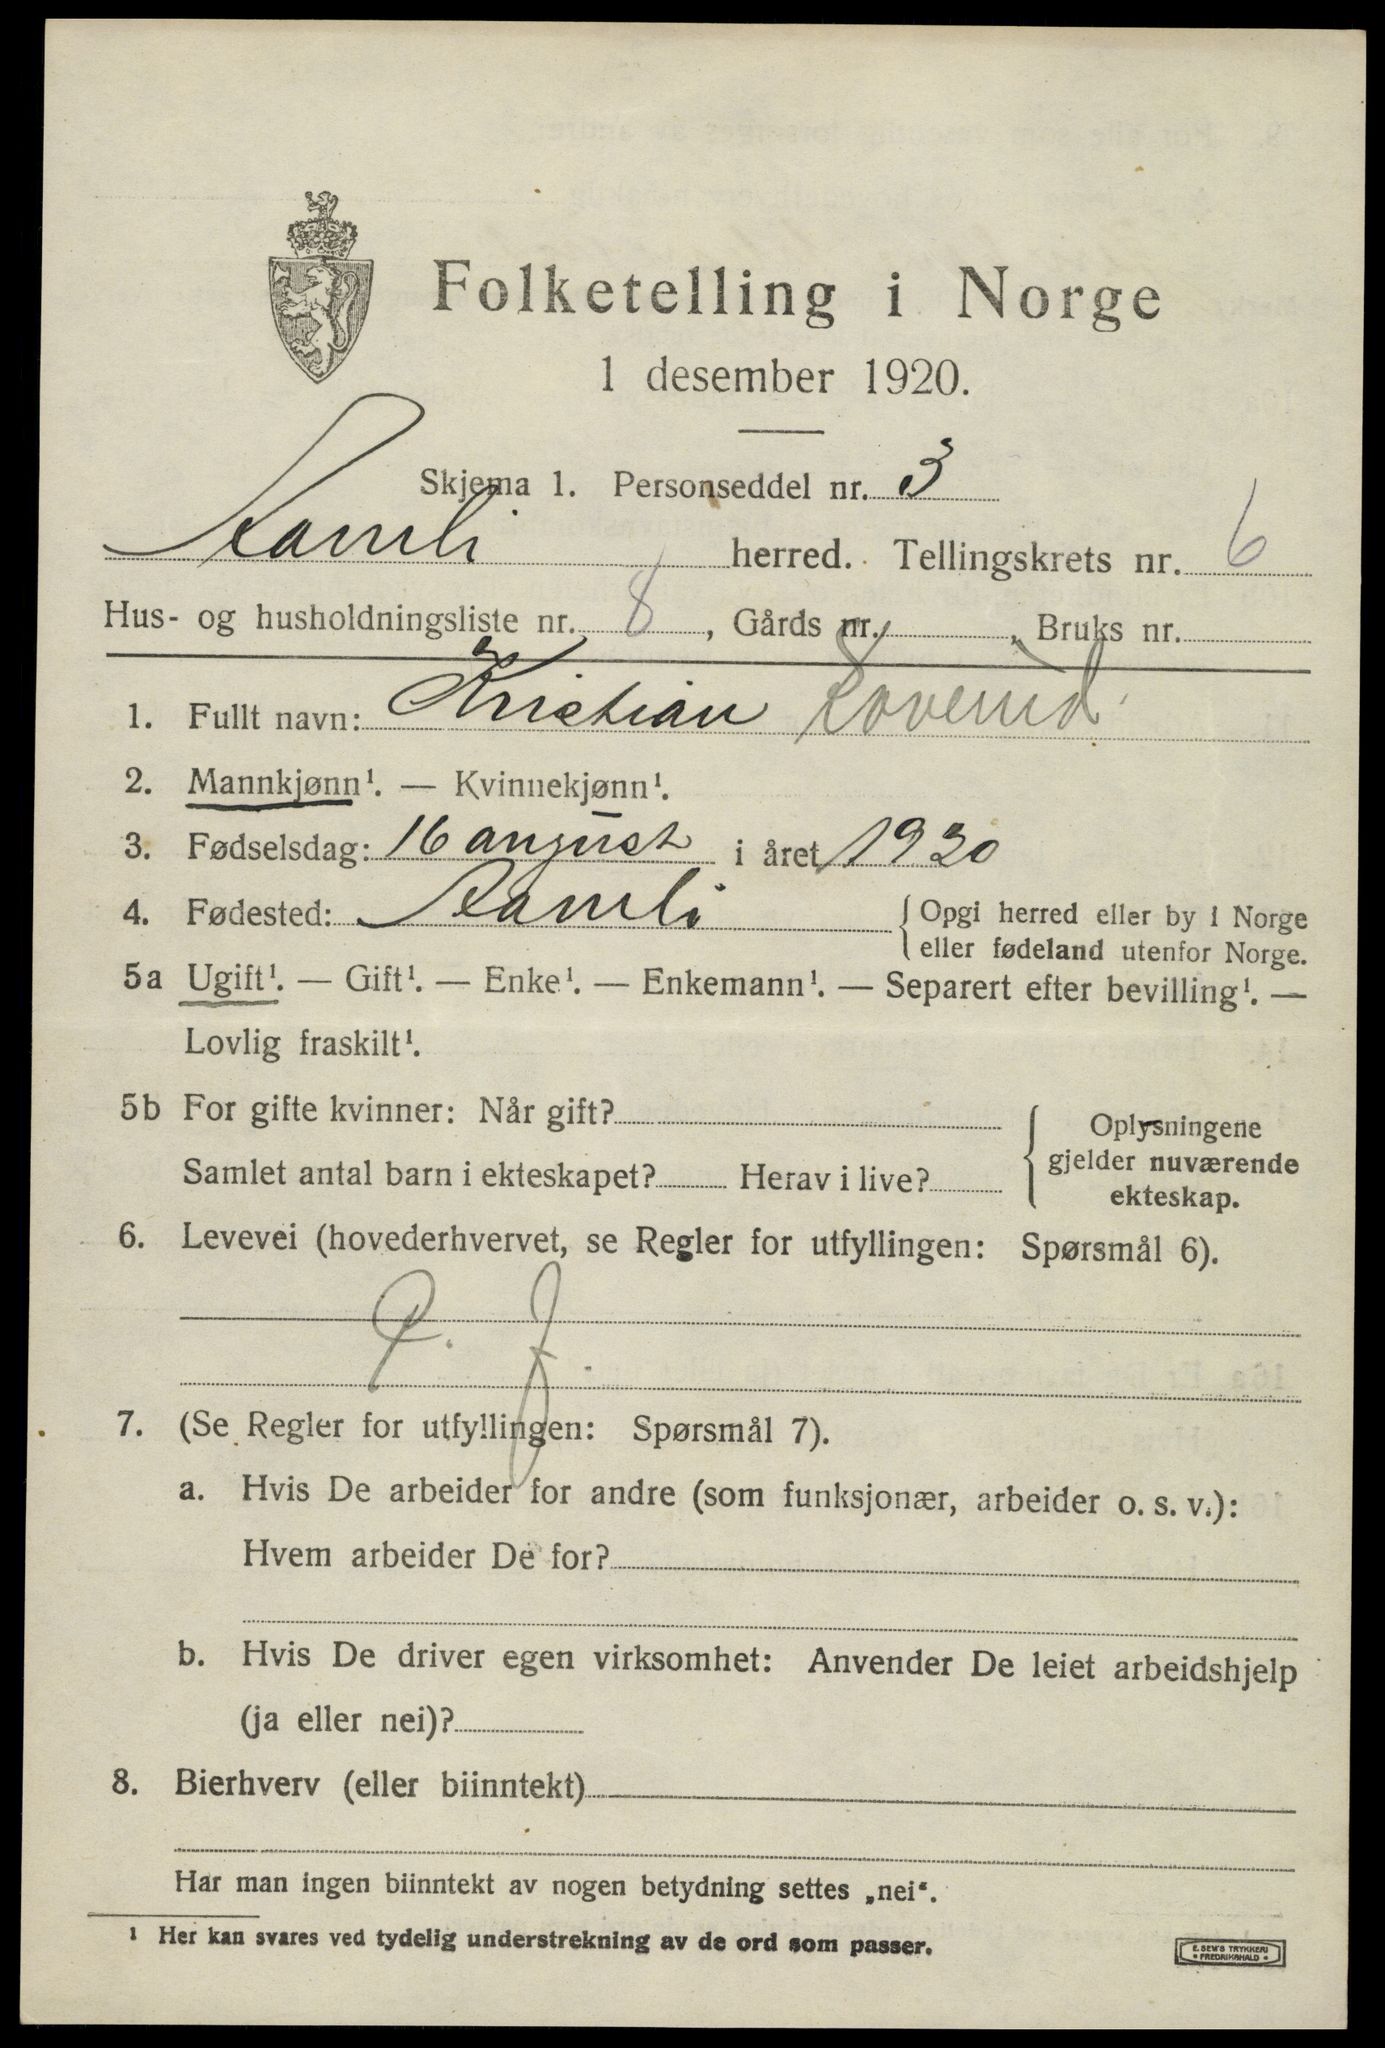 Folketelling i Norge
1 desember 1920.
Skjema 1. Personseddel nr. 3
herred. Tellingskrets nr. 6
Hus- og husholdningsliste nr. 8, Gårds nr. , Bruks nr.
1. Fullt navn: Kristian
2. Mannkjønn¹. — Kvinnekjønn¹.
3. Fødselsdag: 16 august i året 1920
4. Fødested: { Opgi herred eller by i Norge
eller fødeland utenfor Norge.
5a Ugift¹. — Gift¹. — Enke¹. — Enkemann¹. — Separert efter bevilling¹. —
Lovlig fraskilt¹.
5b For gifte kvinner: Når gift?
Samlet antal barn i ekteskapet? Herav i live?
{ Oplysningene
gjelder nuværende
ekteskap.
6. Levevei (hovederhvervet, se Regler for utfyllingen: Spørsmål 6).
7. (Se Regler for utfyllingen: Spørsmål 7).
a. Hvis De arbeider for andre (som funksjonær, arbeider o. s. v.):
Hvem arbeider De for?
b. Hvis De driver egen virksomhet: Anvender De leiet arbeidshjelp
(ja eller nei)?
8. Bierhverv (eller biinntekt)
Har man ingen biinntekt av nogen betydning settes „nei“.
¹ Her kan svares ved tydelig understrekning av de ord som passer.
E. SEM'S TRYKKERI
• FREDRIKSHALD •